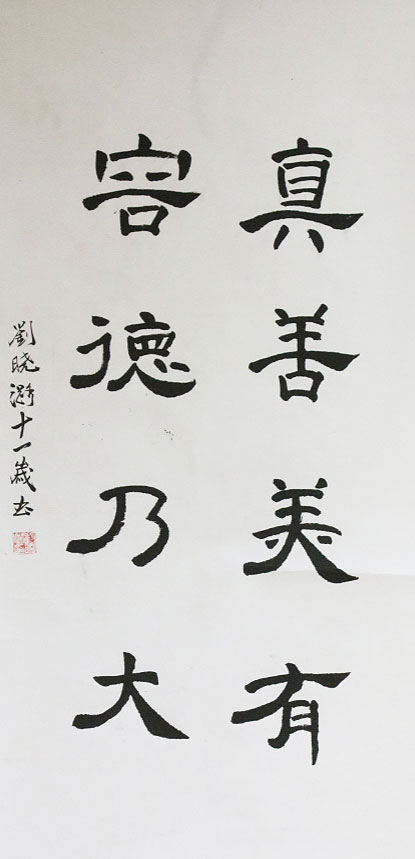 真善美有
容德乃大
劉晓潞十一歲书